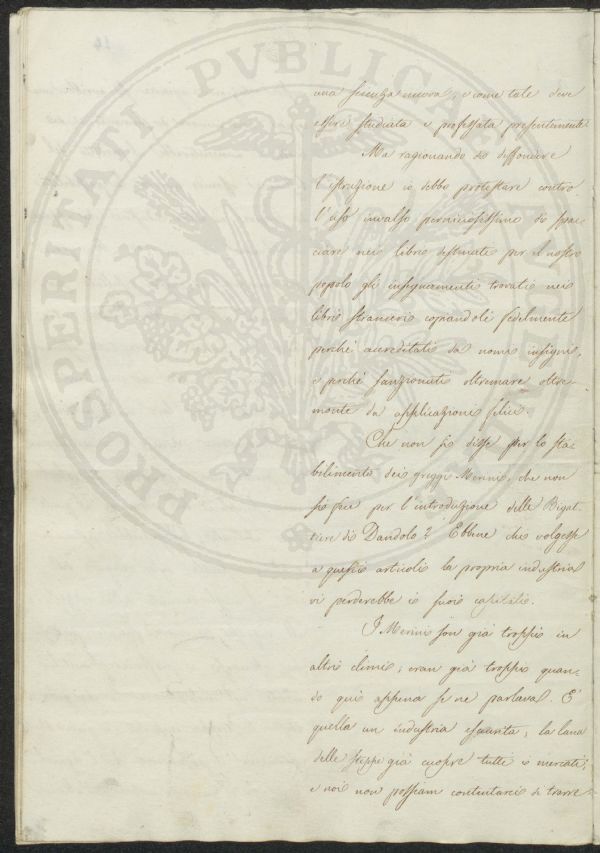 PROSPERITATI PVBLICAE AVGENDAE
una scienza nuova, e come tale deve
essere studiata e professata presentemente
Ma ragionando di diffondere
l'istruzione io debbo protestare contro
l'uso invalso perniciosissimo di spac-
ciare nei libri destinati per il nostro
popolo gli insegnamenti trovati nei
libri stranieri copiandoli fedelmente
perchè accreditati da nomi insigni,
e perchè sanzionati oltremare oltre-
monte da applicazioni felici.
Che non si disse per lo sta-
bilimento dei greggi Merini, che non
si fece per l'introduzione delle Bigat-
tiere di Dandolo? Ebbene chi volgesse
a questi articoli la propria industria
vi perderebbe i suoi capitali.
I Merini son già troppi in
altri climi; eran già troppi quan-
do qui appena se ne parlava. È
quella un industria esaurita; la lana
delle steppe già cuopre tutti i mercati;
e noi non possiam contentarci di trarre